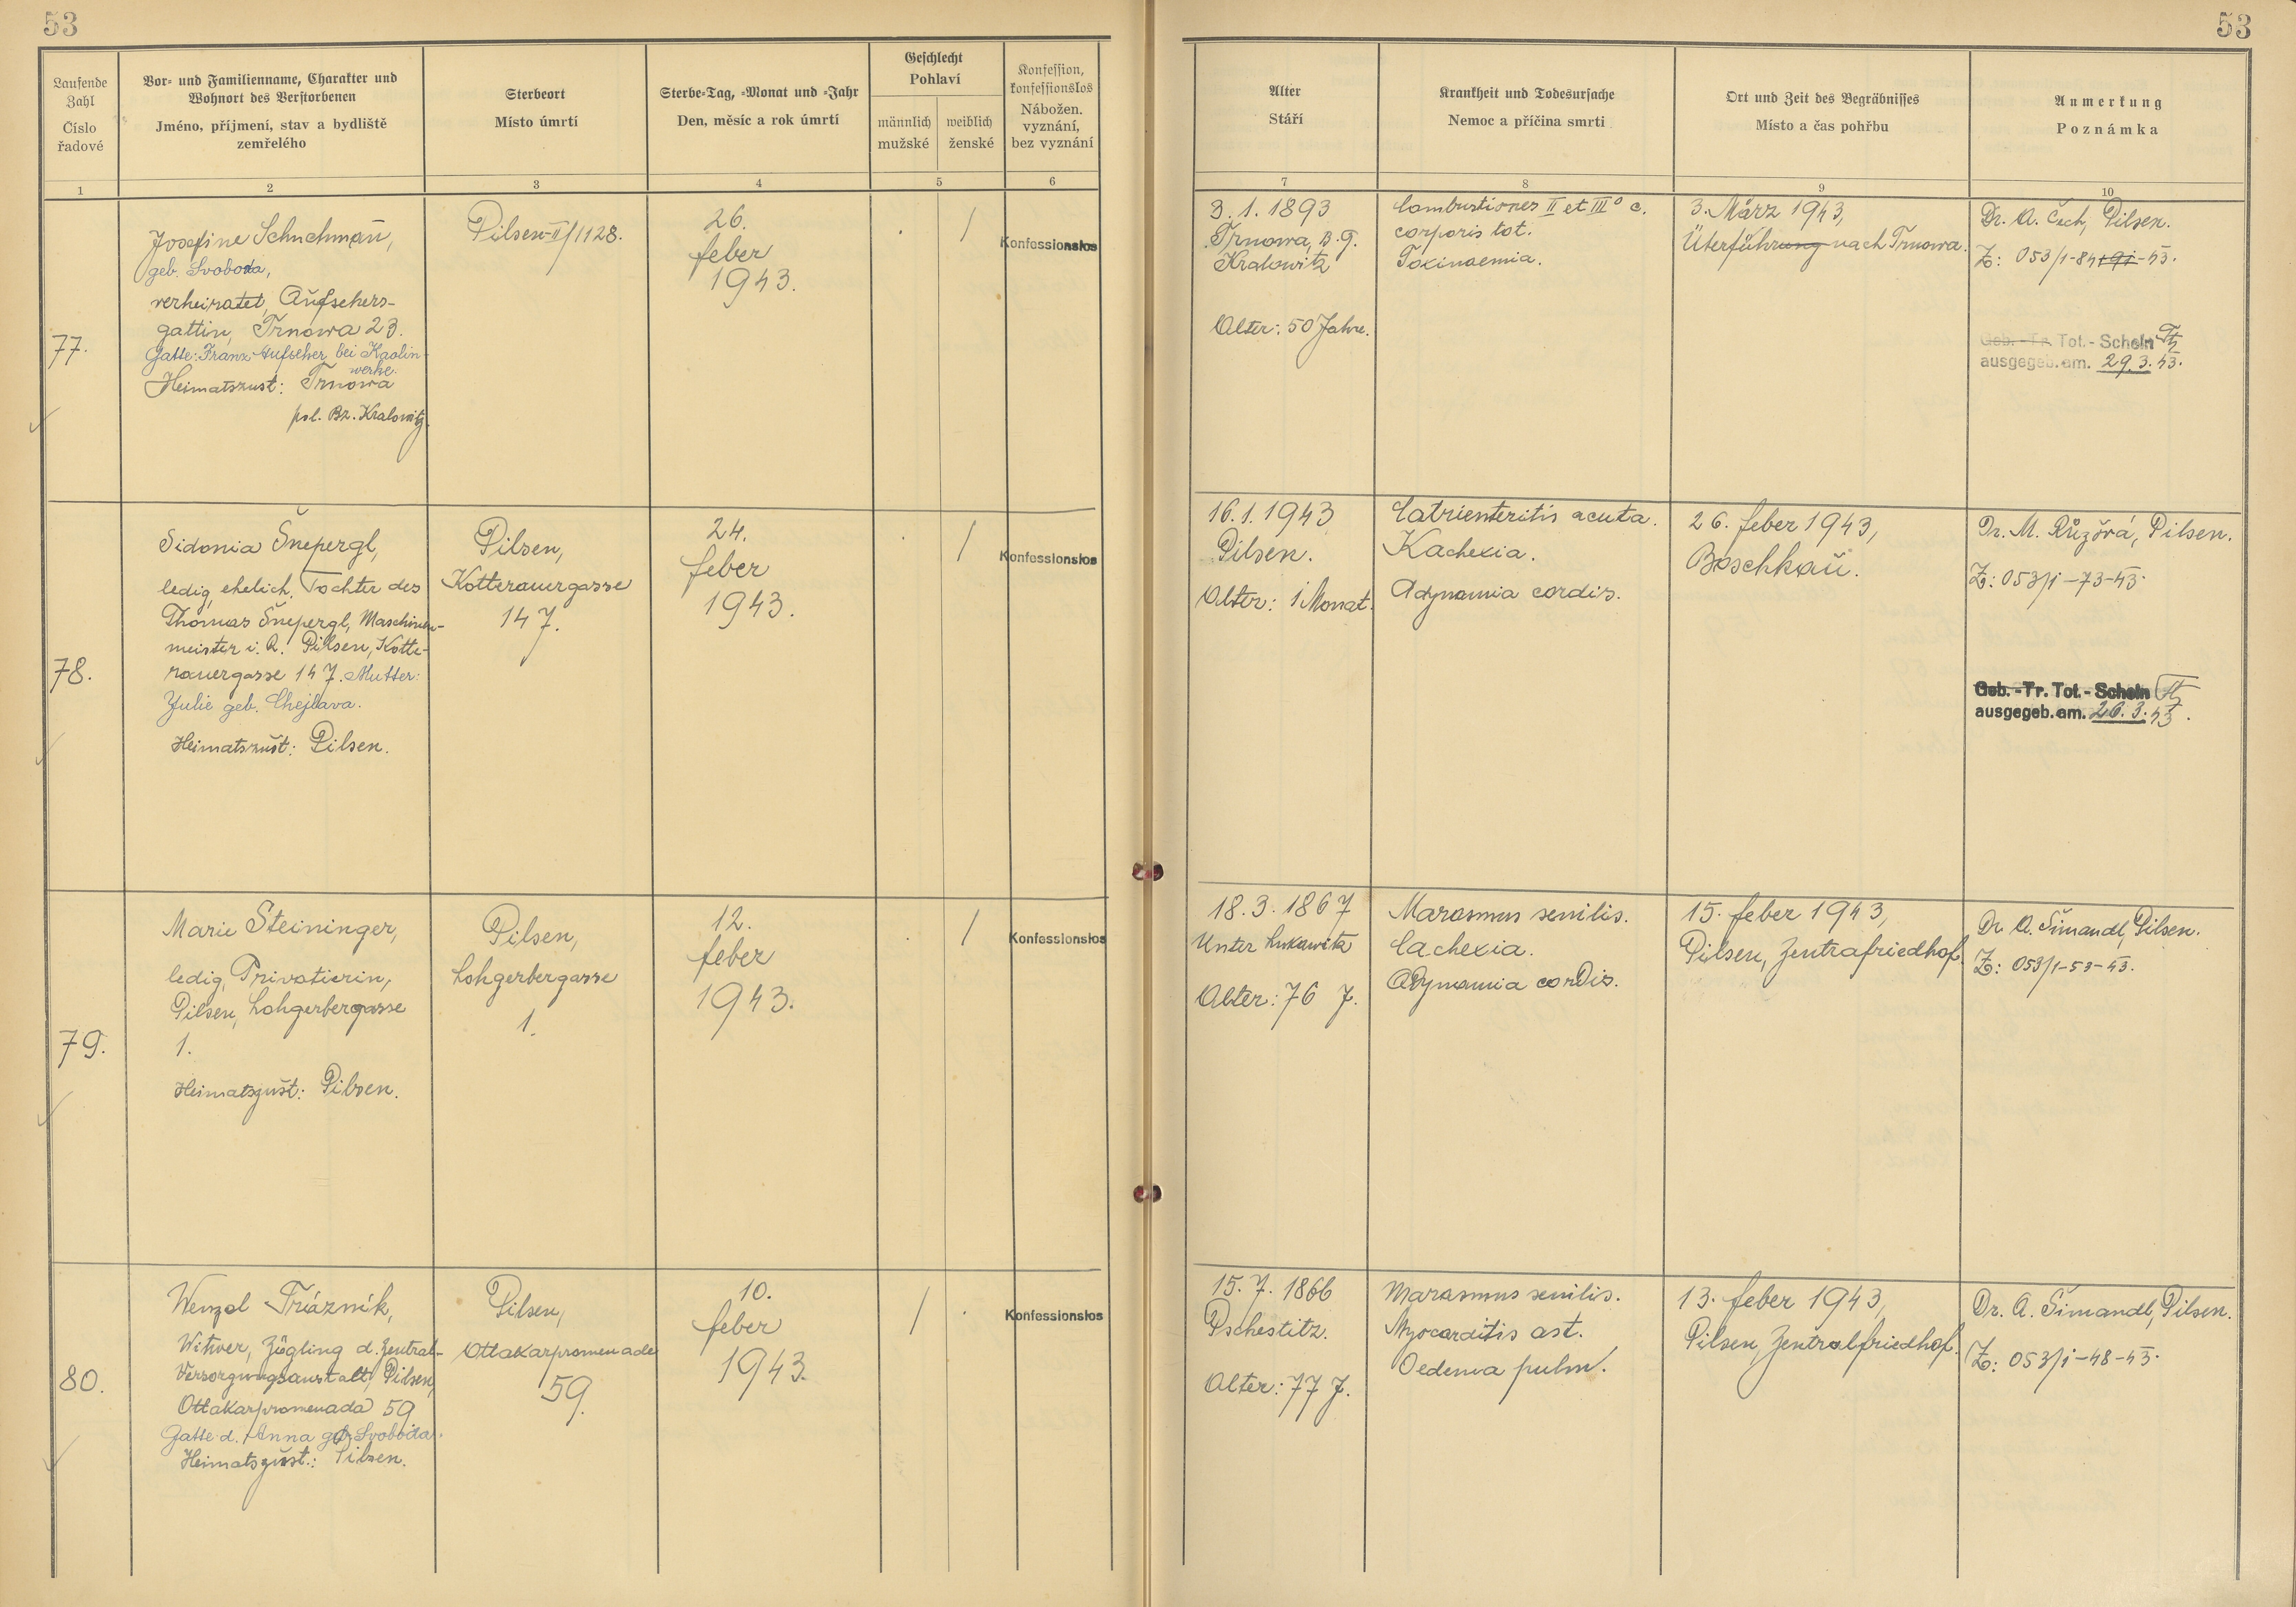 53
53
Laufende Zahl
Číslo řadové
Vor- und Familienname, Charakter und
Wohnort des Verstorbenen
Jméno, příjmení, stav a bydliště
zemřelého
Sterbeort
Místo úmrtí
Sterbe-Tag, -Monat und -Jahr
Den, měsíc a rok úmrtí
Geschlecht
Pohlaví
männlich
mužské
weiblich
ženské
Konfession,
konfessionslos
Nábožen.
vyznání,
bez vyznání
Alter
Stáří
Krankheit und Todesursache
Nemoc a příčina smrti
Ort und Zeit des Begräbnisses
Místo a čas pohřbu
Anmerkung
Poznámka
1
2
3
4
5
6
7
8
9
10
77.
Josefine Schuchman̄,
geb. Svoboda,
verheiratet, Aufsehers-
gattin, Trnowa 23.
Gatte: Franz Aufseher bei Kaolin-
werke.
Heimatszust: Trnowa
pol. Bz. Kralowitz.
Pilsen-II/1128.
26.
feber
1943.
/
Konfessionslos
3. 1. 1893
Trnowa, B. G.
Kralowitz
Alter: 50 Jahre.
Combustiones II et III° c.
corporis tot.
Toxinaemia.
3. März 1943,
Überführung nach Trnowa.
Dr. A. Čech, Pilsen.
Z: 053/1-84-43.
Geb. - Tr. Tot. - Schein
ausgegeb. am. 29.3.43.
78.
Sidonia Šnepergl,
ledig, ehelich. Tochter des
Thomas Šnepergl, Maschinen-
meister i. R. Pilsen, Kotte-
rauergasse 147. Mutter:
Julie geb. Chejlava.
Heimatszust: Pilsen.
Pilsen,
Kotterauergasse
147.
24.
feber
1943.
/
Konfessionslos
16. 1. 1943
Pilsen.
Alter: 1 Monat.
Gatrienteritis acuta.
Kachexia.
Adynamia cordis.
26. feber 1943,
Boschkau.
Dr. M. Růzová, Pilsen.
Z: 053/1-73-43.
Geb. - Tr. Tot. - Schein
ausgegeb. am. 26.3.43.
79.
Marie Steininger,
ledig, Privatierin,
Pilsen, Lohgerbergasse
1.
Heimatszust: Pilsen.
Pilsen,
Lohgerbergasse
1.
12.
feber
1943.
/
Konfessionslos
18. 3. 1867
Unter Lukawitz
Alter: 76 J.
Marasmus senilis.
Cachexia.
Adynamia cordis.
15. feber 1943,
Pilsen, Zentrafriedhof.
Dr. A. Šimandl, Pilsen.
Z: 053/1-53-43.
80.
Wenzel Trázník,
Witwer, Zögling d. Zentral-
Versorgungsanstalt, Pilsen,
Ottakarpromenada 59
Gatte d. Anna geb. Svoboda.
Heimatszust.: Pilsen.
Pilsen,
Ottakarpromenade
59.
10.
feber
1943.
/
Konfessionslos
15. 7. 1866
Pschestitz.
Alter: 77 J.
Marasmus senilis.
Myocarditis ast.
Oedema pulm.
13. feber 1943,
Pilsen, Zentralfriedhof.
Dr. A. Šimandl, Pilsen.
Z: 053/1-48-43.